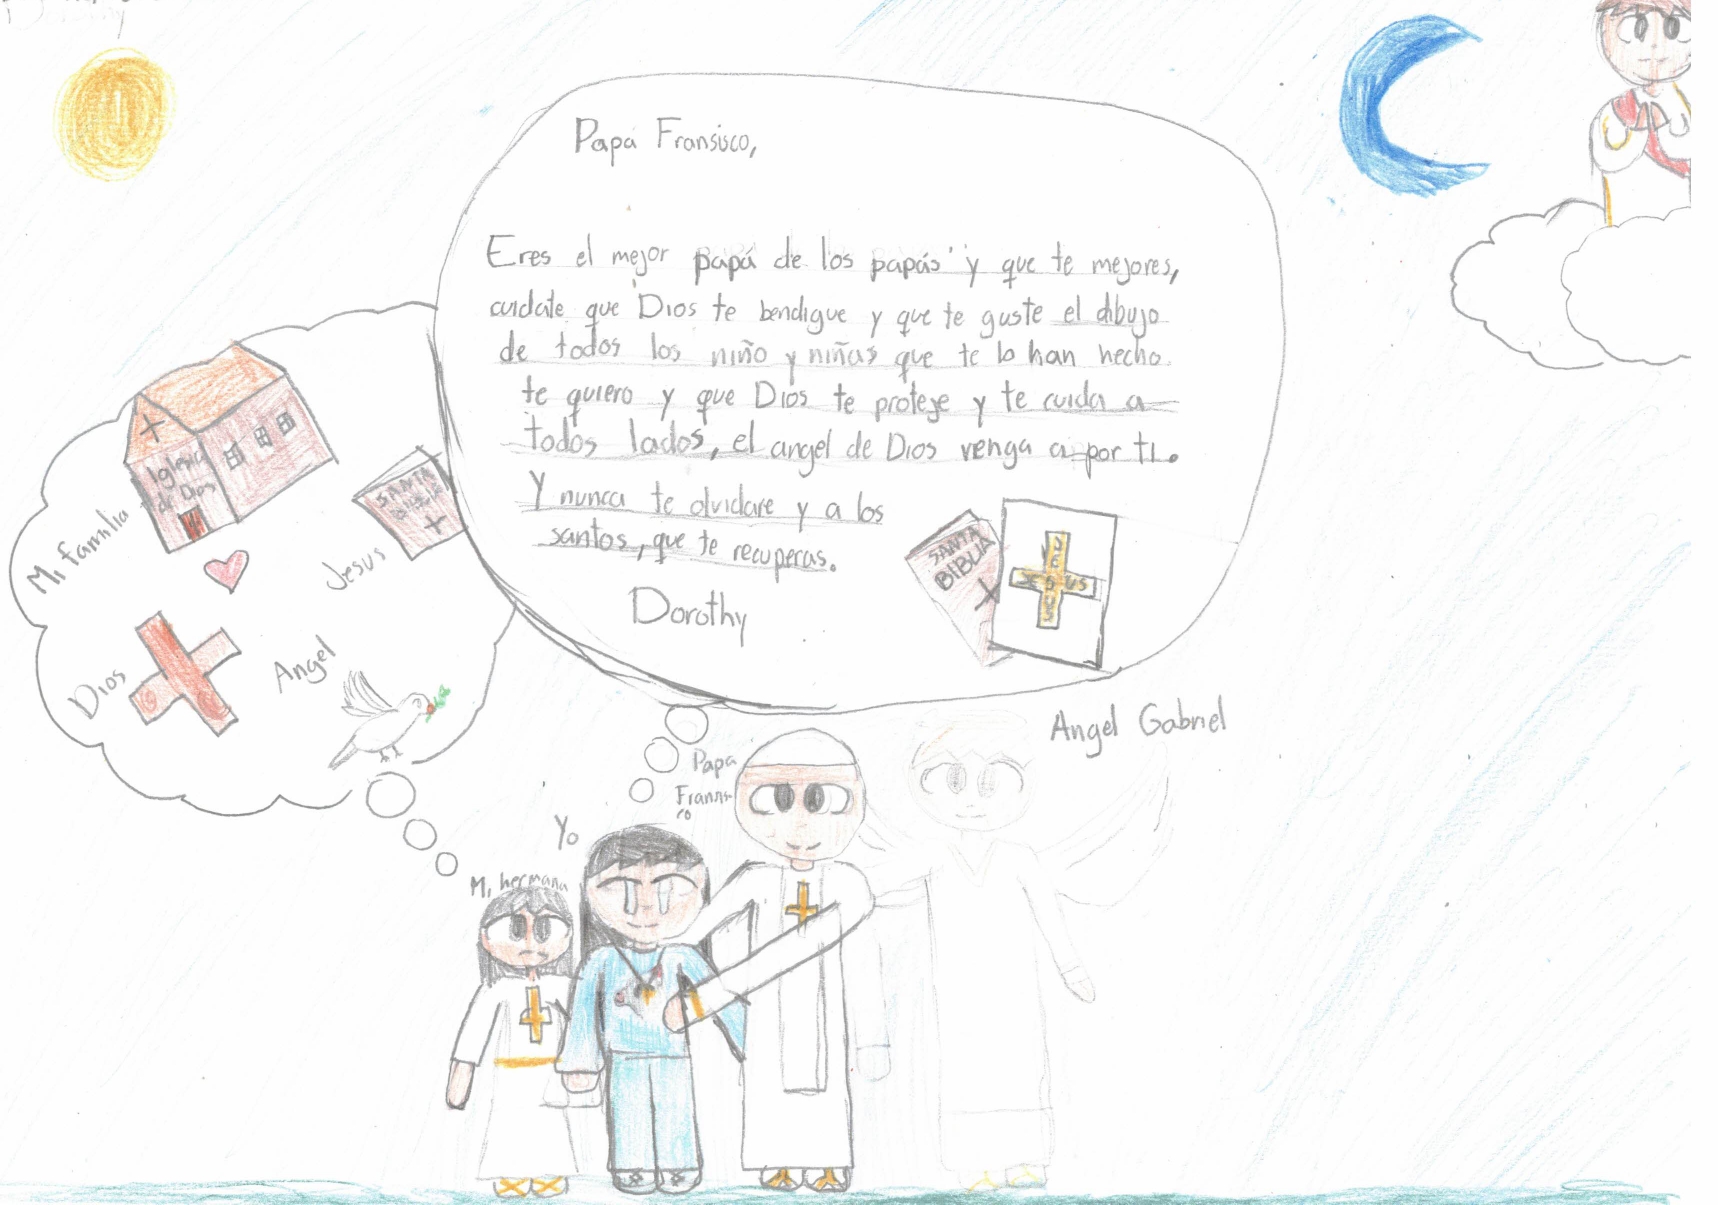 Papá Fransisco,
Eres el mejor papá de los papás y que te mejores,
cuidate que Dios te bendigue y que te guste el dibujo
de todos los niño y niñas que te lo han hecho.
te quiero y que Dios te proteje y te cuida a
todos lados, el angel de Dios venga a por ti.
Y nunca te olvidare y a los
santos, que te recuperas.
Dorothy
SANTA
BIBLIA
JESUS
JESUS
Iglesia
de Dios
SANTA
BIBLIA
Mi familia
Jesus
Dios
Angel
Angel Gabriel
Papa
Yo
Mi hermana